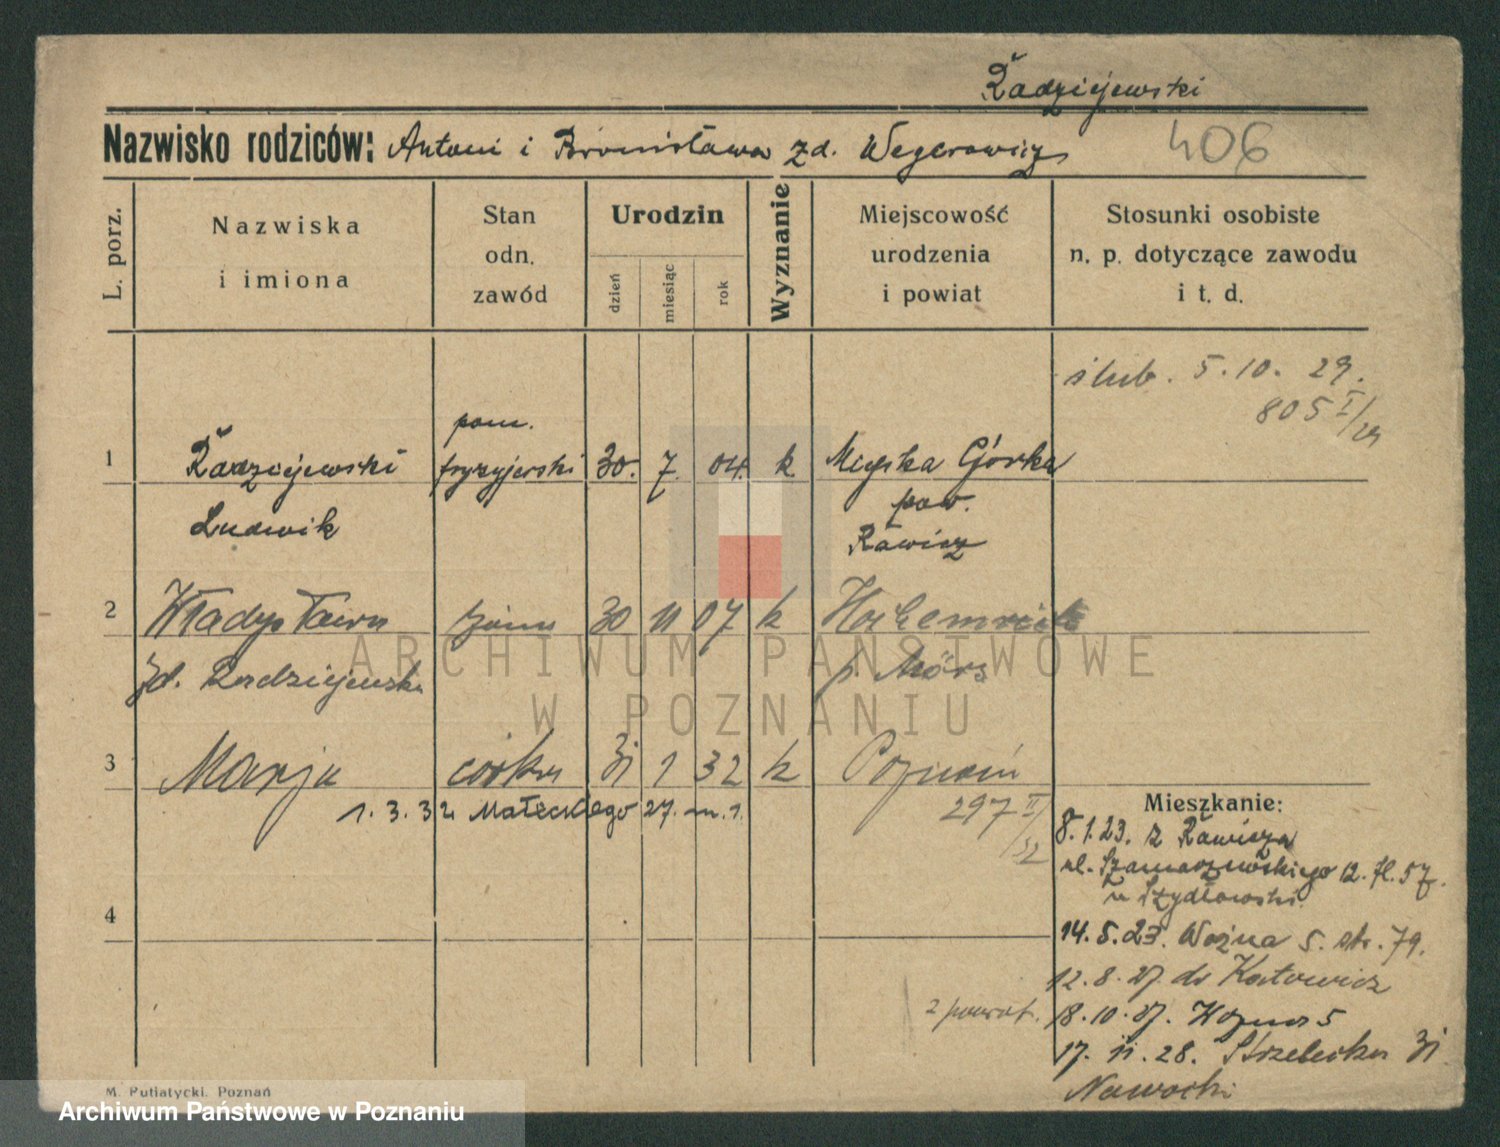 Radziejewski
Nazwisko rodziców: Antoni i Bronisława zd. Wegerowicz
406
L. porz.
Nazwiska
i imiona
Stan
odn.
zawód
Urodzin
dzień
miesiąc
rok
Wyznanie
Miejscowość
urodzenia
i powiat
Stosunki osobiste
n. p. dotyczące zawodu
i t. d.
ślub. 5.10. 29.
805 I/29
pom.
1 Radziejewski fryzyjerski 30. 7. 04. k Miejska Górka
Ludwik pow.
Rawicz
2 Władysława żona 30 11 07 k
zd. Radziejewska p. Mörs
3 Marja córka 31 1 32 k Poznań
1. 3. 32 Małeckiego 27. m. 1. 297 II/32
Mieszkanie:
8.1.23. z Rawicza
ul. Szamarzewskiego 12. Fl. 57.
u Szydłowski.
4
14.5.23. Woźna 5. str. 79.
12.8.27. do Katowic
z powrot. 18.10.27. Woźna 5
17. 11. 28. Strzelecka 31
Nawocki
M. Putiatycki, Poznań
ARCHIWUM PAŃSTWOWE
W POZNANIU
Archiwum Państwowe w Poznaniu